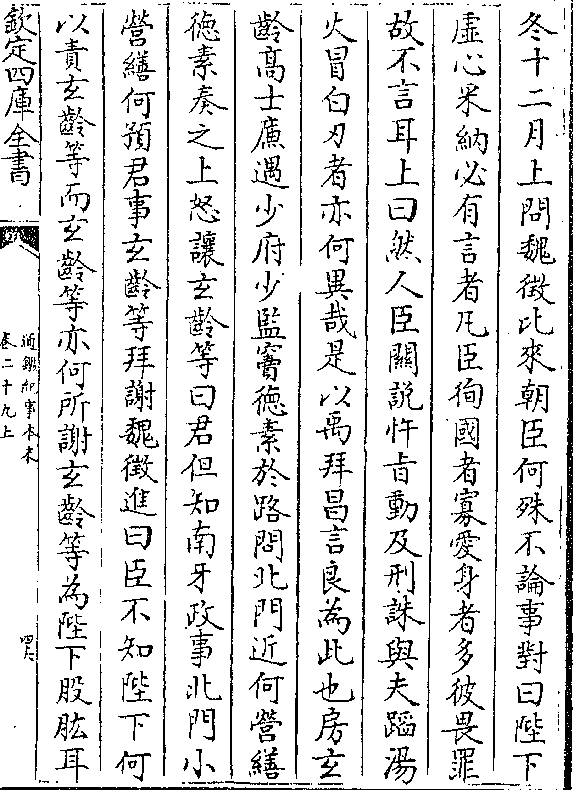 冬十二月上問魏徵比來朝臣何殊不論事對曰陛下
虛心采納必有言者凡臣徇國者寡愛身者多彼畏罪
故不言耳上曰然人臣關說忤㫖動及刑誅與夫蹈湯
火冒白刃者亦何異哉是以禹拜昌言良為此也房玄
齡髙士㢘遇少府少監竇徳素於路問北門近何營繕
徳素奏之上怒讓玄齡等曰君但知南牙政事北門小
營繕何預君事玄齡等拜謝魏徵進曰臣不知陛下何
以責玄齡等而玄齡等亦何所謝玄齡等為陛下股肱耳
欽定四庫全書
通鑑紀事本末
卷二十九上
四六